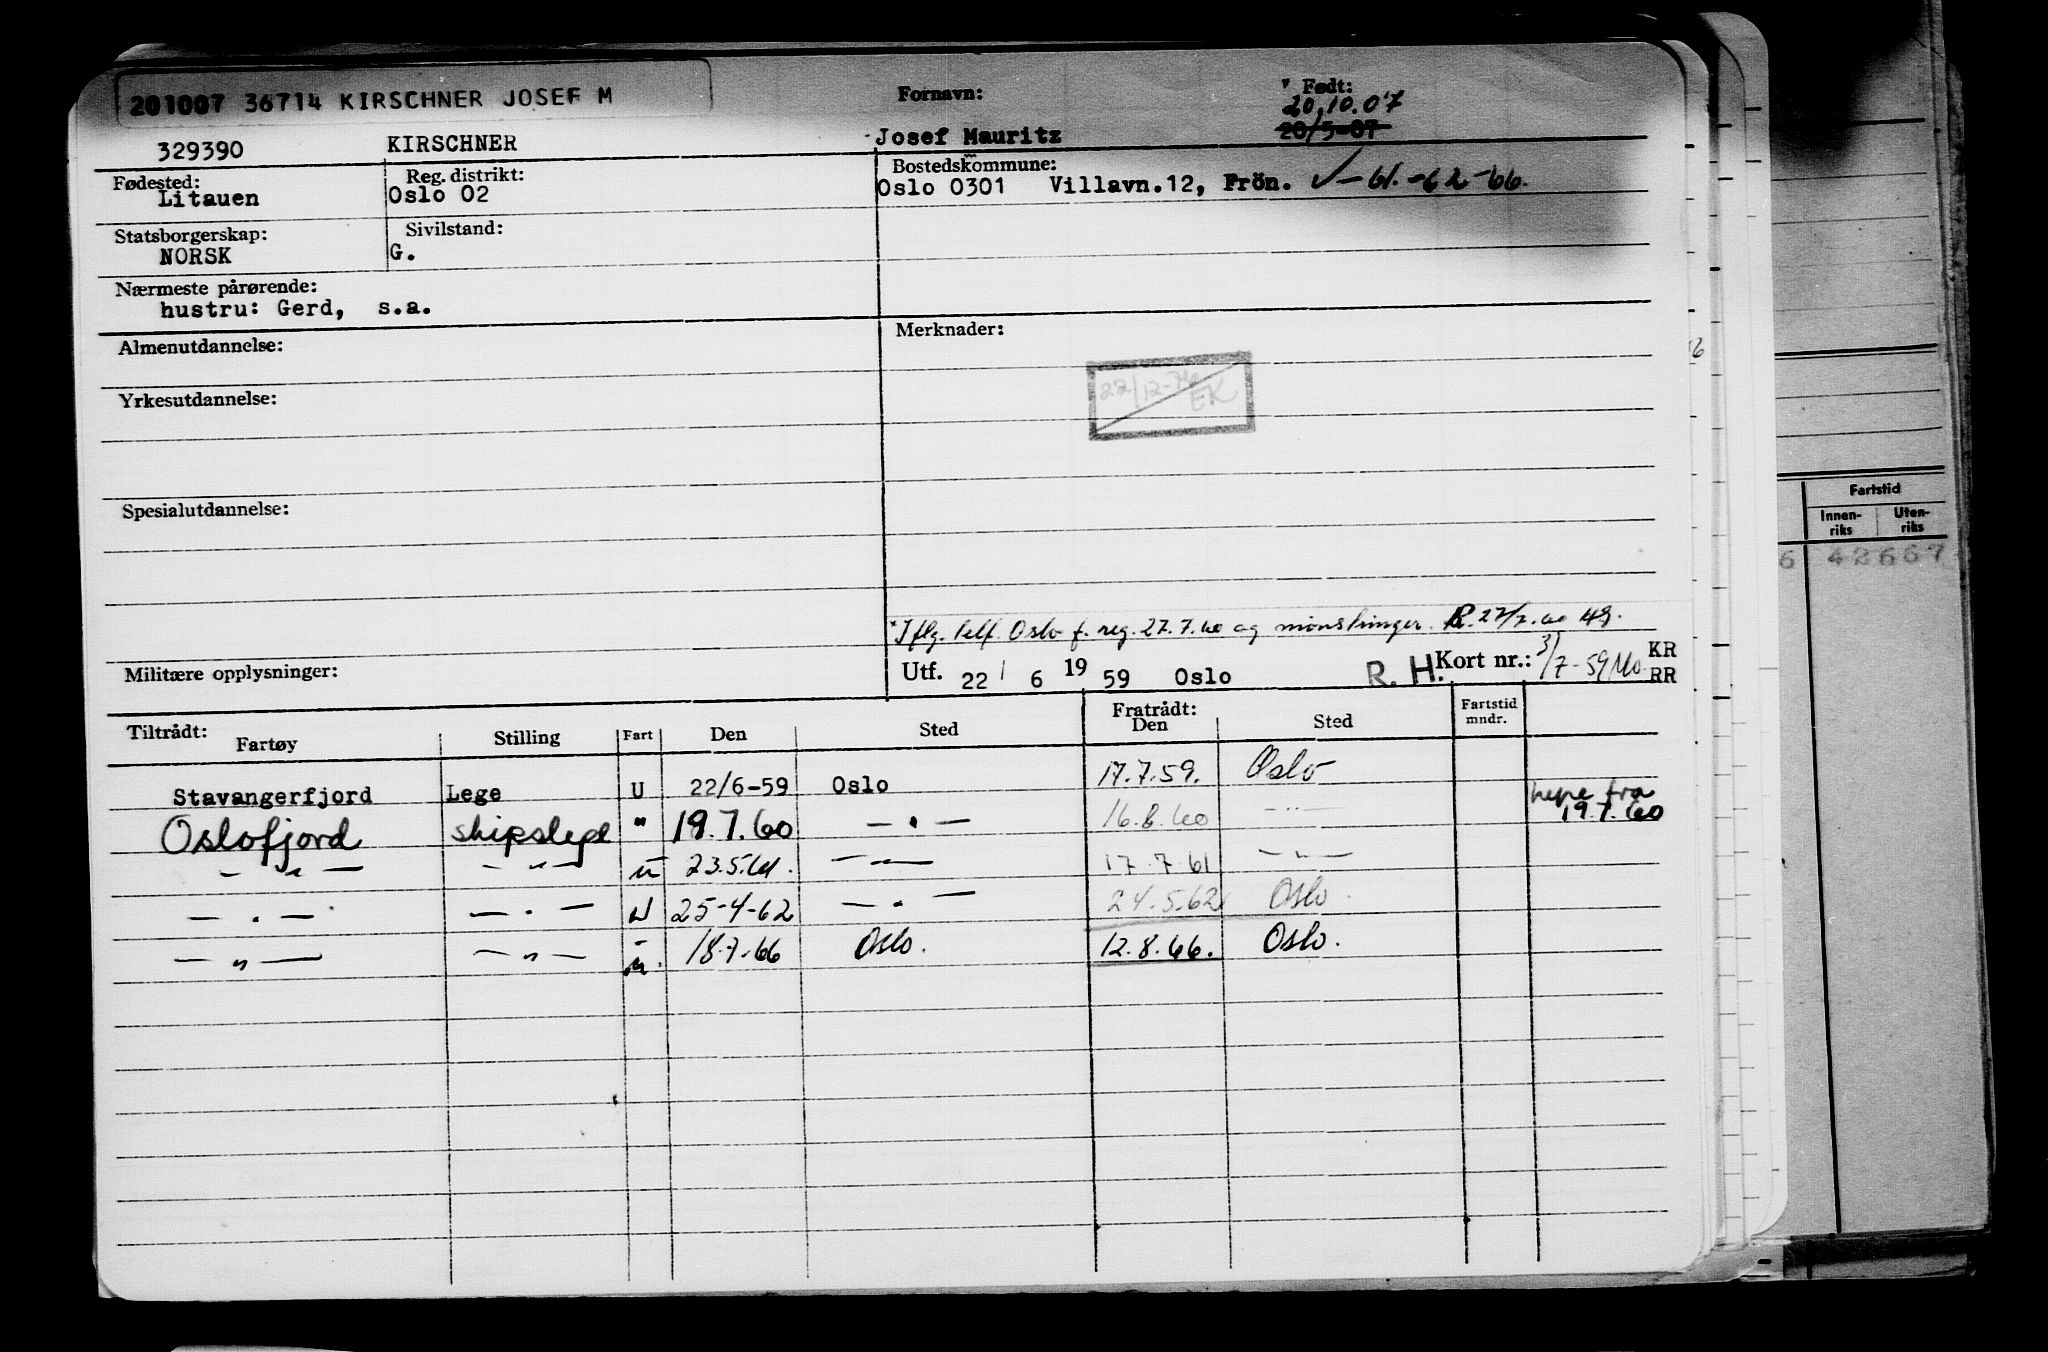 201007 36714 KIRSCHNER JOSEF M
Fornavn:
Født:
20.10.07
329390 KIRSCHNER Josef Mauritz 20/5-07
Fødested: Reg. distrikt: Bostedskommune:
Litauen Oslo 02 Oslo 0301 Villavn.12, Frön. ✓-61.-62-66.
Statsborgerskap: Sivilstand:
NORSK G.
Nærmeste pårørende:
hustru: Gerd, s.a.
Almenutdannelse: Merknader:
22/12-76
EK
Yrkesutdannelse:
Spesialutdannelse:
Oslo f. reg. 27.7.60 og mønstringer.
Militære opplysninger: Utf. 22/6 1959 Oslo R. H. Kort nr.: 3/7-59 KR
RR
Tiltrådt: Fratrådt: Fartstid
Fartøy Stilling Fart Den Sted Den Sted mndr.
Stavangerfjord Lege U 22/6-59 Oslo 17.7.59. Oslo
Oslofjord skipslege " 19.7.60 — " — 16.8.60 — " — fra
19.7.60
— " — — " — u 23.5.61. — " — 17.7.61 — " —
— " — — " — U 25-4-62 — " — 24.5.62 Oslo.
— " — — " — u. 18.7-66 Oslo. 12.8.66. Oslo.
Fartstid
Innen-
riks
Uten-
riks
6 42667